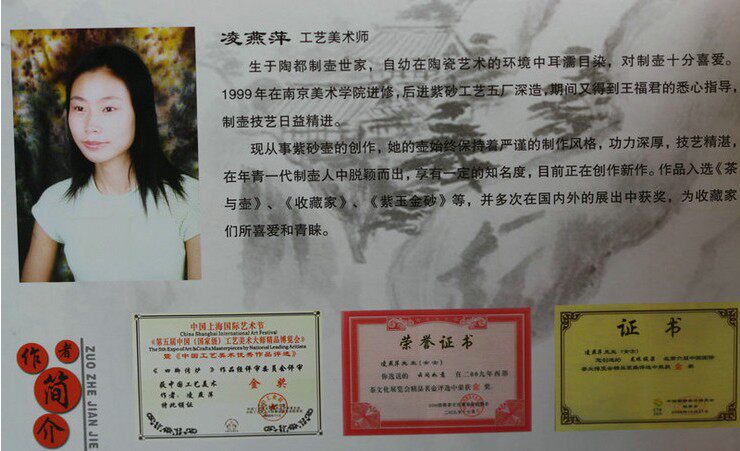 凌燕萍 工艺美术师
生于陶都制壶世家，自幼在陶瓷艺术的环境中耳濡目染，对制壶十分喜爱。
1999年在南京美术学院进修，后进紫砂工艺五厂深造，期间又得到王福君的悉心指导，
制壶技艺日益精进。
现从事紫砂壶的创作，她的壶始终保持着严谨的制作风格，功力深厚，技艺精湛，
在年青一代制壶人中脱颖而出，享有一定的知名度，目前正在创作新作。作品入选《茶
与壶》、《收藏家》、《紫玉金砂》等，并多次在国内外的展出中获奖，为收藏家
们所喜爱和青睐。
作者简介
ZUO ZHE JIAN JIE
中国上海国际艺术节
China Shanghai International Art Festival
《第五届中国（国家级）工艺美术大师精品博览会》
The 5th Expo of Art&Crafts Masterpieces by National Leading Artists
暨《中国工艺美术优秀作品评选》
作品经评审委员会评审
获中国工艺美术 金奖
作者：凌燕萍
特此颁证
荣誉证书
凌燕萍先生（女士）
在二00九年西部
泰文化展览会精品茗壶评选中荣获金奖。
证书
凌燕萍先生（女士）